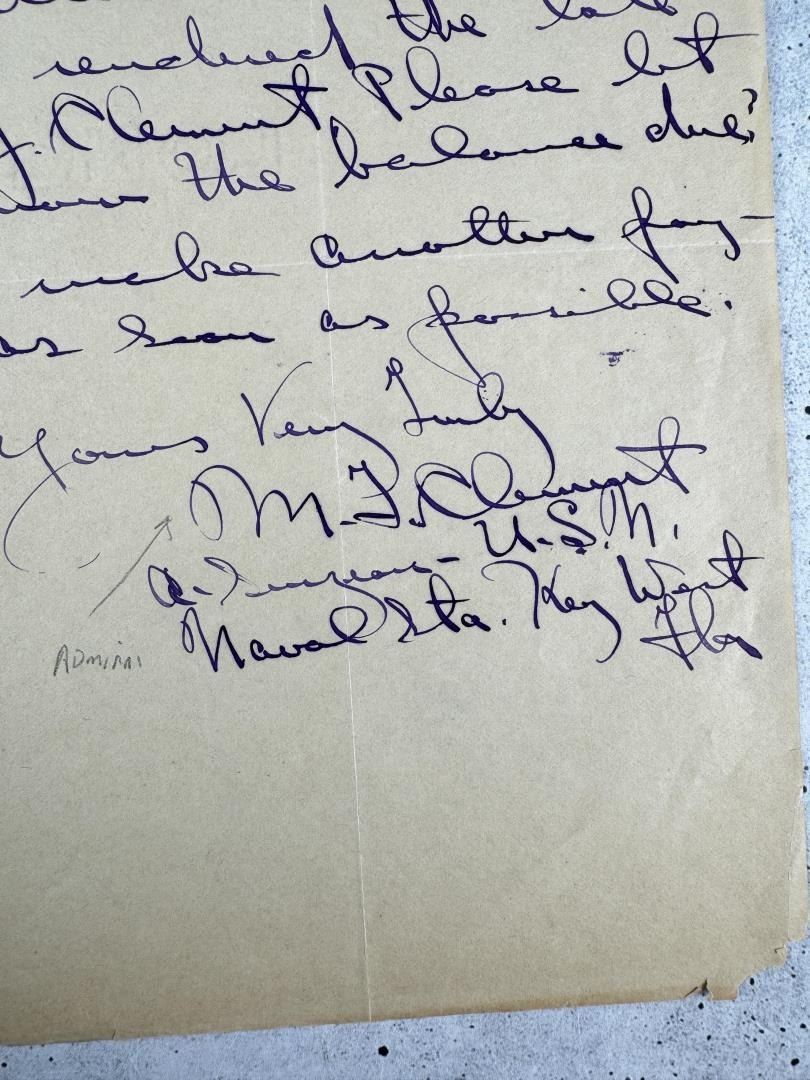 rendered the late
J. Clement Please let
know the balance due?
make another pay-
as soon as possible.
Yours Very Truly
M. J. Clement
A. Surgeon- U.S.N.
Naval Sta. Key West
Fla
ADMIRAL